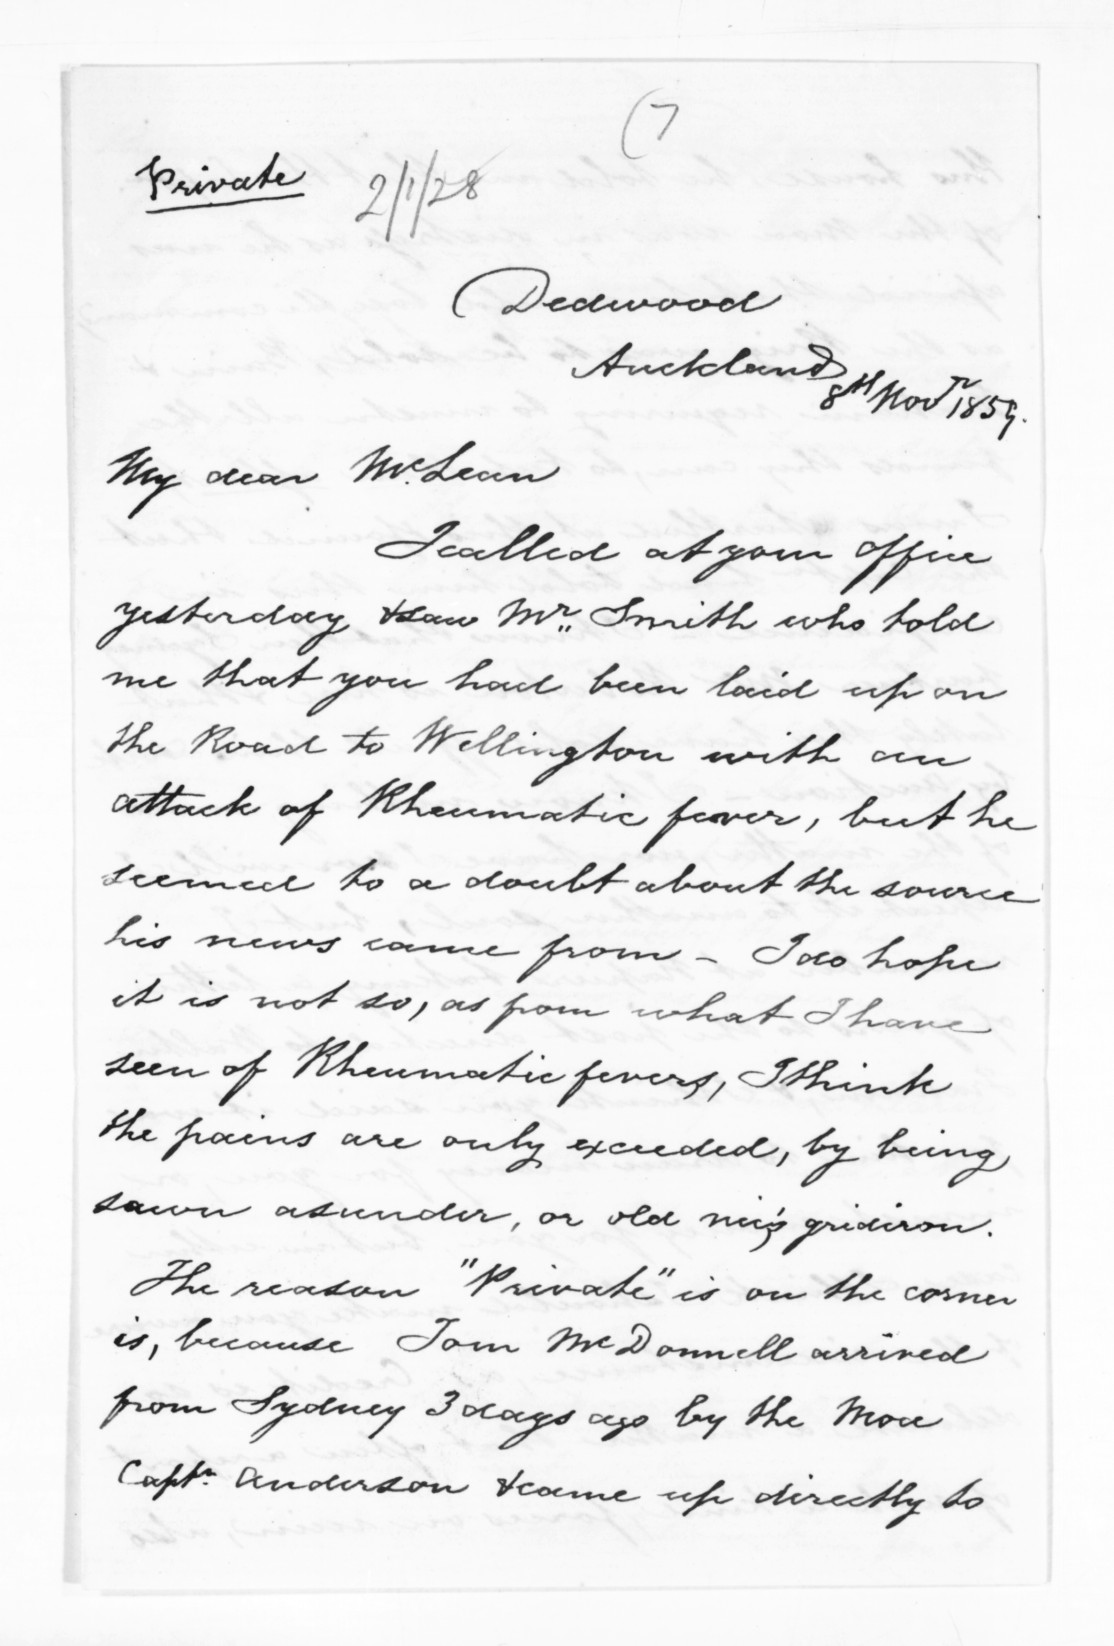 (7
Private
2/1/28
Dedwood
Auckland
8th Novr 1859.
My dear McLean
I called at your office
yesterday & saw Mr. Smith who told
me that you had been laid up on
the Road to Wellington with an
attack of Rheumatic fever, but he
seemed to a doubt about the source
his news came from - I do hope
it is not so, as from what I have
seen of Rheumatic fevers, I think
the pains are only exceeded, by being
sawn asunder, or old nic's gridiron.
The reason "Private" is on the corner
is, because Tom McDonnell arrived
from Sydney 3 days ago by the Moa
Captn. Anderson & came up directly to